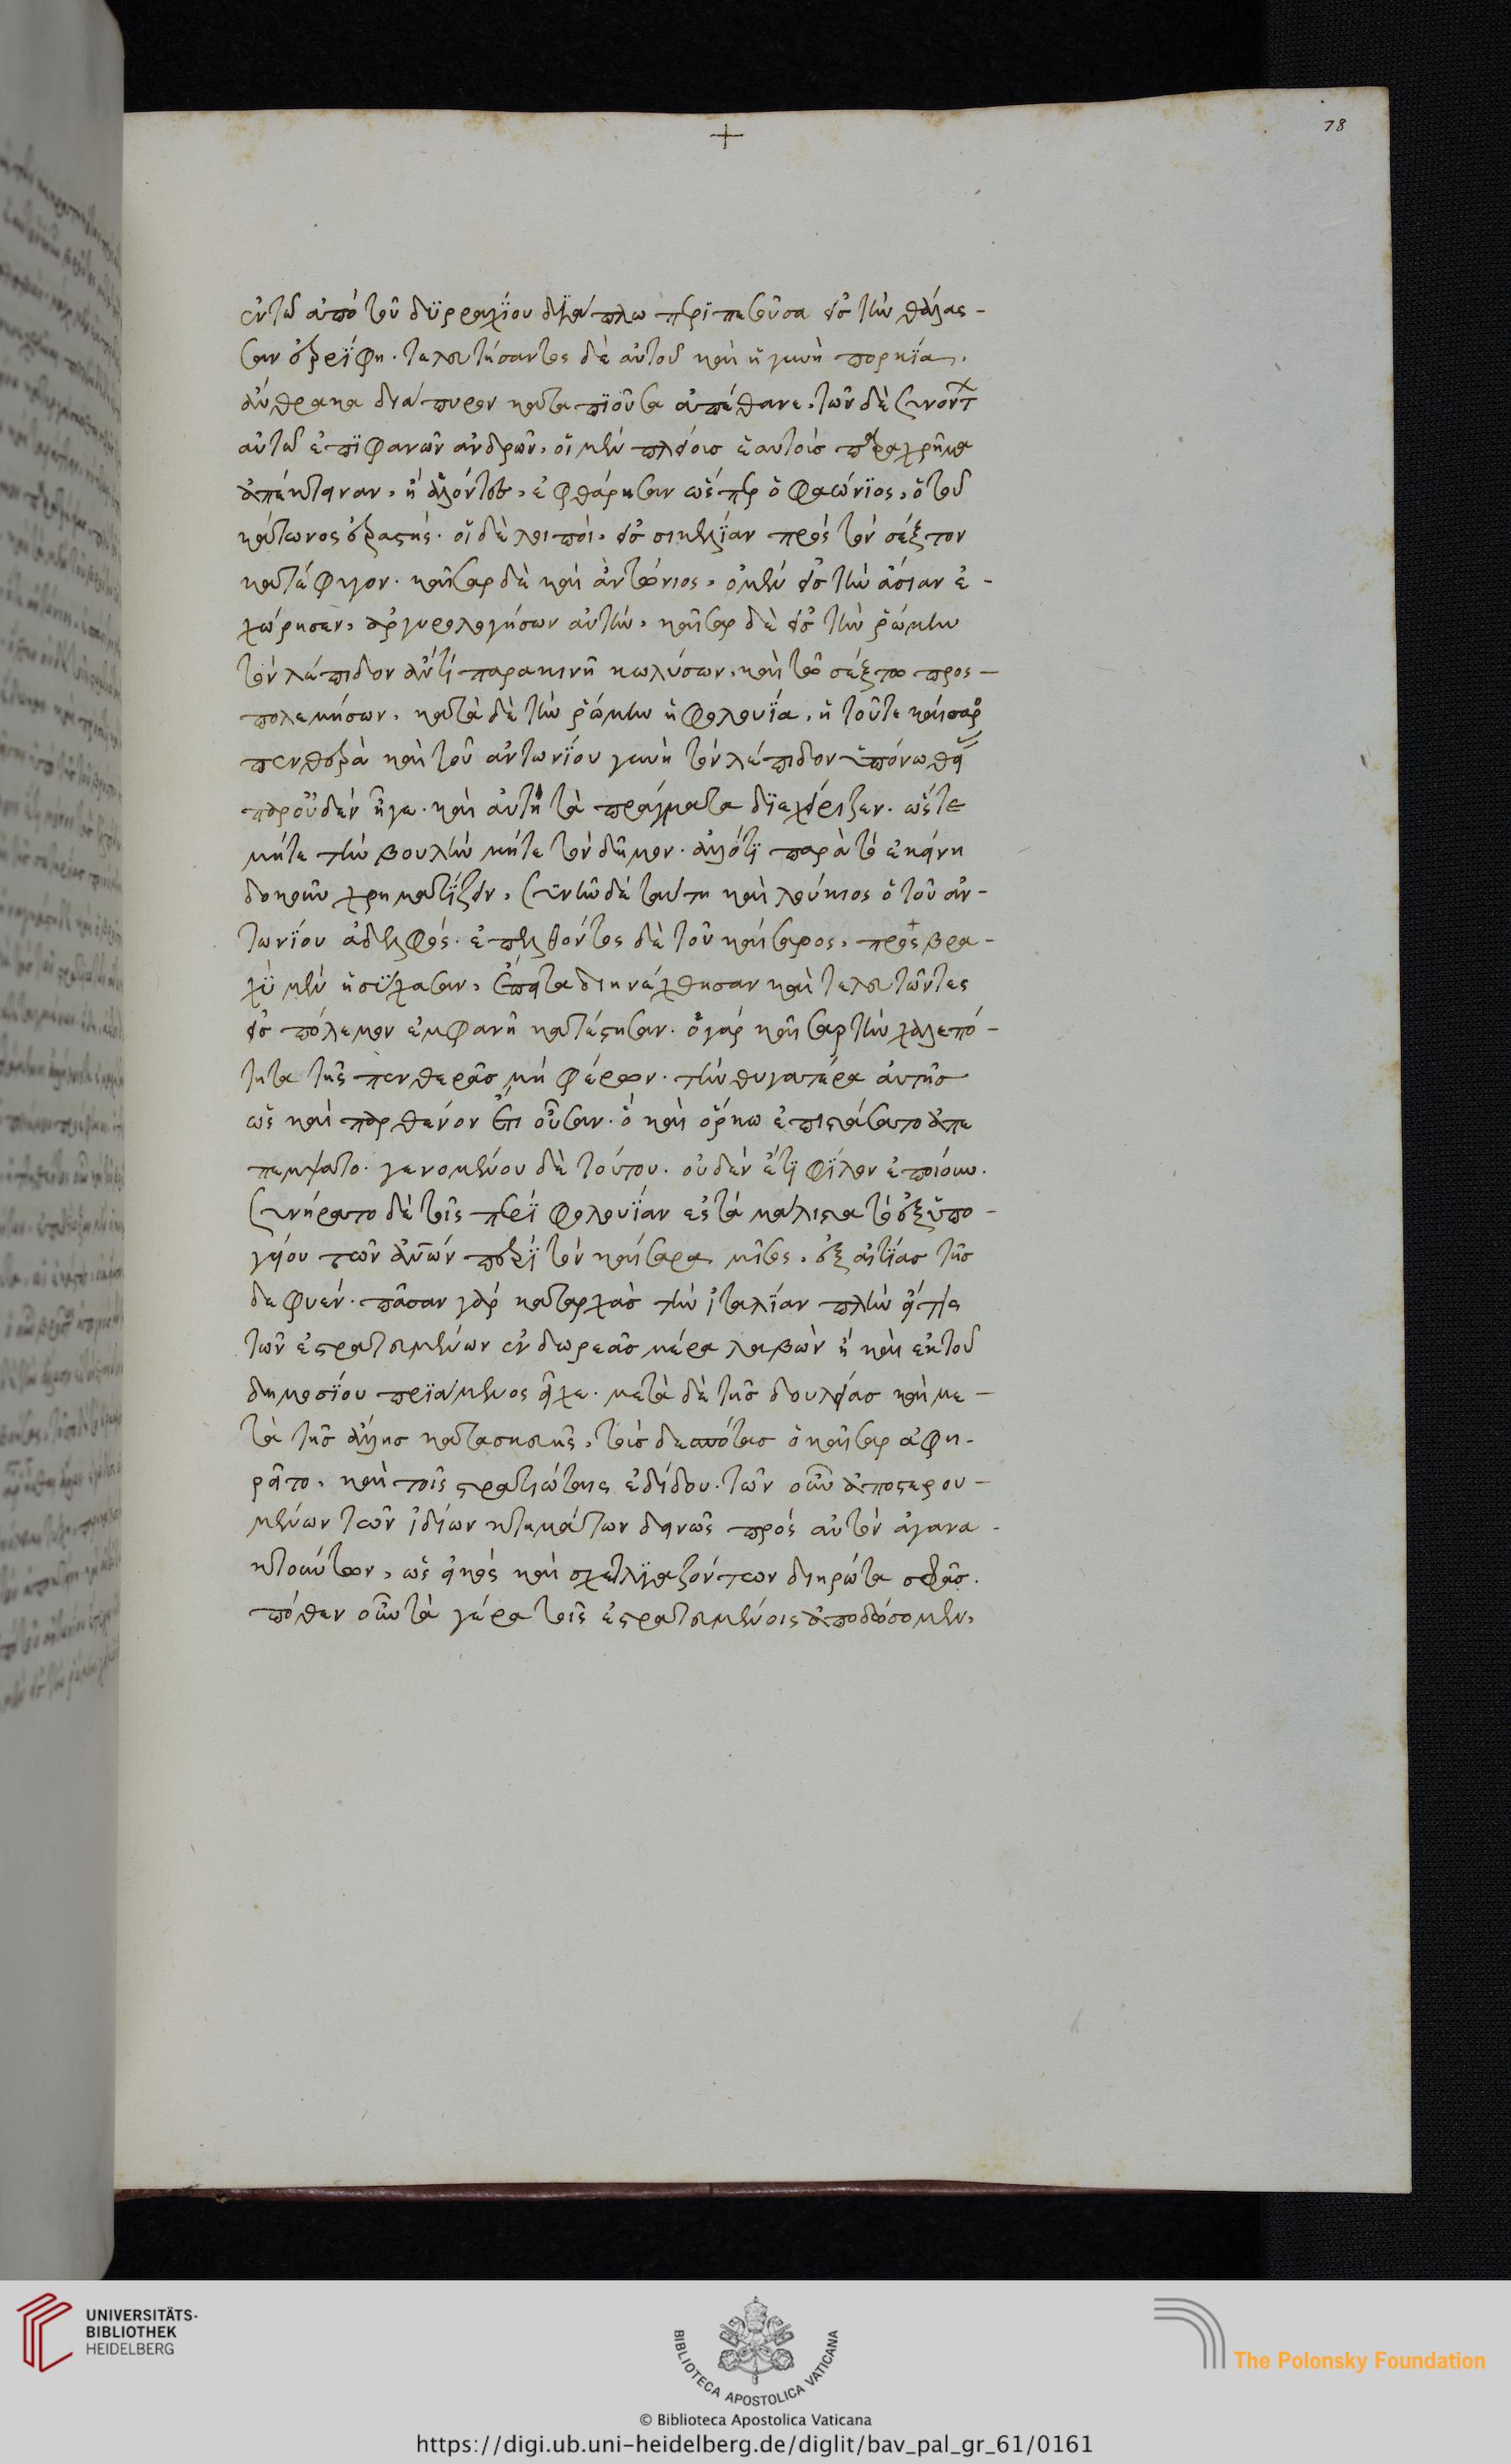 +
78
ἐν τῶ ἀπὸ τοῦ δϋρραχΐου δϊάπλω περϊπεσοῦσα εἰς τὴν θάλασ-
σαν ἐξερΐφη. τελευτήσαντος δὲ αὐτοῦ καὶ ἡ γυνὴ πορκία.
ἄνθρακα διάπυρον καταπϊοῦσα ἀπέθανε. τῶν δὲ συνόντ
αὐτῶ ἐπϊφανῶν ἀνδρῶν. οἱ μὲν πλείοις ἑαυτοὺς παραχρῆμα
ἀπέκτειναν, ἢ ἁλόντες. ἐφθάρησαν ὥσπερ ὁ φαώνϊος, ὁ τοῦ
κάτωνος ἐραστής. οἱ δὲ λοιποὶ. εἰς σικελίαν πρὸς τὸν σέξτον
κατέφυγον. καῖσαρ δὲ καὶ ἀντώνιος, ὁ μὲν εἰς τὴν ἀσίαν ἐ-
χώρησεν, ἀργυρολογήσων αὐτὴν, καῖσαρ δὲ εἰς τὴν ῥώμην
τὸν λέπιδον ἄν τι παρακινῆ κωλύσων. καὶ τῶ σέξτω προς-
πολεμήσων. κατὰ δὲ τὴν ῥώμην ἡ φολουΐα, ἡ τοῦτε καίσαρ
πενθερὰ καὶ τοῦ ἀντωνΐου γυνὴ τὸν λέπιδον ὑπὸ νωθεί
παρ' οὐδὲν ἦγε. καὶ αὐτὴ τὰ πράγματα δϊεχείριζεν. ὥστε
μήτε τὴν βουλὴν μήτε τὸν δῆμον. ἄλλό τϊ παρὰ τὸ ἐκείνη
δοκοῦν χρηματΐζειν, συνῆν δὲ ταύτη καὶ λούκιος ὁ τοῦ ἀν-
τωνΐου ἀδελφός. ἐπελθόντος δὲ τοῦ καίσαρος, πρὸς βρα-
χὺ μὲν ἡσύχασαν, ἔπειτα διηνέχθησαν καὶ τελευτῶντες
εἰς πόλεμον ἐμφανῆ κατέστησαν. ὁ γὰρ καῖσαρ τὴν χαλεπό-
τητα τῆς πενθερᾶς μὴ φέρων. τὴν θυγατέρα αὐτῆς
ὡς καὶ παρθένον ἔτι οὖσαν. ὃ καὶ ὅρκω ἐπιστώσατο ἀπε
πέμψατο. γενομένου δὲ τούτου. οὐδὲν ἔτϊ φΐλον ἐποίουν.
συνήρατο δὲ τοῖς περὶ φολουΐαν ἐς τὰ μάλιστα τὸ ἐξ ὑπο-
γυίου τῶν ἀνῶν περὶ τὸν καίσαρα μῖσος, ἐξ αἰτίας τῆς
δε φυέν. πᾶσαν γὰρ καταρχὰς τὴν ἰταλΐαν πλὴν εἴ τις
τῶν ἐστρατευμένων ἐν δωρεᾶς μέρει λαβὼν ἢ καὶ ἐκ τοῦ
δημοσΐου πρϊάμενος εἶχε. μετὰ δὲ τῆς δουλείας καὶ με-
τὰ τῆς ἄλλης κατασκευῆς, τοὺς δεσπότας ὁ καῖσαρ ἀφη-
ρεῖτο, καὶ τοῖς στρατιώταις ἐδίδου. τῶν οὖν ἀποστερου-
μένων τῶν ἰδίων κτημάτων δεινῶς πρὸς αὐτὸν ἀγανα-
κτούντων, ὡς εἰκὸς καὶ σχετλϊαζόντων διηρώτα σφᾶς.
πόθεν οὖν τὰ γέρα τοῖς ἐστρατευμένοις ἀποδώσομεν,
UNIVERSITÄTS-
BIBLIOTHEK
HEIDELBERG
BIBLIOTECA APOSTOLICA VATICANA
The Polonsky Foundation
© Biblioteca Apostolica Vaticana
https://digi.ub.uni-heidelberg.de/diglit/bav_pal_gr_61/0161